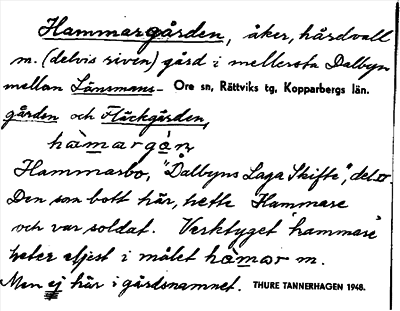 Hammargården, åker, hårdvall
m. (delvis riven) gård i mellersta Dalbyn
mellan Länsmans- Ore sn, Rättviks tg, Kopparbergs län.
gården och Fläckgården,
hàmargȯ́n,
Hammarbo, "Dalbyns Laga Skifte", del II.
Den som bott här, hette Hammare
och var soldat. Verktyget 'hammare'
heter eljest i målet hàmar m.
Men ej här i gårdsnamnet. THURE TANNERHAGEN 1948.